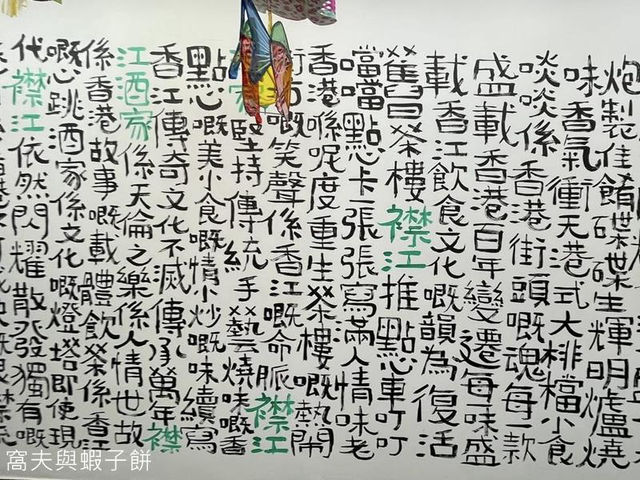 炮製佳餚碟碟生輝明爐燒
味香氣衝天港式大排檔小食
啖啖係香港街頭嘅魂每一款
盛載香港百年變遷每味盛
載香江飲食文化嘅韻為復活
舊日茶樓襟江推點心車叮叮
噹噹點心卡一張張寫滿人情味老
香港喺呢度重生茶樓嘅熱鬧
街坊嘅笑聲係香江嘅命脈襟江
家堅持傳統手藝燒味嘅香
點心嘅美小食嘅情小炒嘅味續寫
香江傳奇文化不滅傳承萬年襟
江酒家係天倫之樂係人情世故
係香港故事嘅載體飲茶係香江
嘅心跳酒家係文化嘅燈塔即使現
代襟江依然閃耀散發獨有嘅
窩夫與蝦子餅